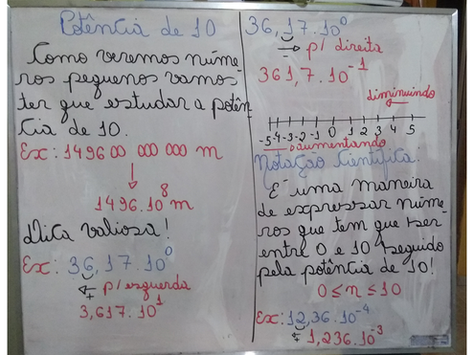 Potência de 10
Como veremos núme-
ros pequenos vamos
ter que estudar a potên
cia de 10.
Ex: 149600 000 000 m
↓
1496.10⁸ m
Dica valiosa!
Ex: 36,17.10⁰
← p/ esquerda
+
3,617.10¹
36,17.10⁰
→ p/ direita
361,7.10⁻¹
diminuindo
-5 -4 -3 -2 -1 0 1 2 3 4 5
aumentando
Notação Científica:
É uma maneira
de expressar núme-
ros que tem que ser
entre 0 e 10 seguido
pela potência de 10!
0 ≤ n ≤ 10
Ex: 12,36.10⁻⁴
← 1,236.10⁻³
+